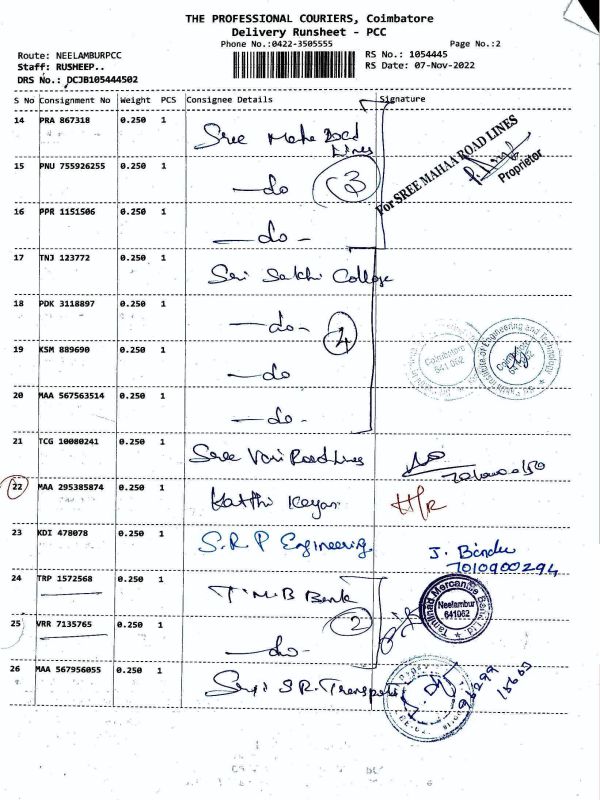 THE PROFESSIONAL COURIERS, Coimbatore
Delivery Runsheet - PCC
Phone No.:0422-3505555 Page No.:2
Route: NEELAMBURPCC RS No.: 1054445
Staff: RUSHEEP.. RS Date: 07-Nov-2022
DRS No.: DCJB105444502
S No Consignment No Weight PCS Consignee Details Signature
14 PRA 867318 0.250 1 Sree Maha Road Lines
For SREE MAHAA ROAD LINES
Proprietor
15 PNU 755926255 0.250 1 —do 3
16 PPR 1151506 0.250 1 —do-
17 TNJ 123772 0.250 1 Sri Sakthi College
18 PDK 3118897 0.250 1 —do- 4
19 KSM 889690 0.250 1 —do
Coimbatore 641 062
Institute of Engineering and Technology
Coimbatore 641 062
20 MAA 567563514 0.250 1 —do-
21 TCG 10080241 0.250 1 Sree Vari Road Lines
22 MAA 295385874 0.250 1 Karthi Keyan H/R
23 KDI 478078 0.250 1 S.R.P Engineering J. Bindu
7010900294
24 TRP 1572568 0.250 1 T.M.B Bank
Tamilnad Mercantile Bank Ltd.
Neelambur
641062
25 VRR 7135765 0.250 1 —do- 2
26 MAA 567956055 0.250 1 S.R. Transports